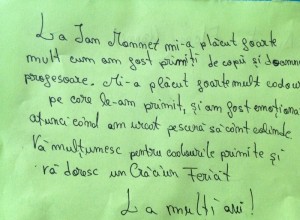 La Jan Monnet mi-a plăcut foarte
mult cum am fost primiți de copii și doamne
profesoare. Mi-a plăcut foarte mult cadou
pe care le-am primit, și am fost emoționat
atunci când am urcat pe scară să cânt colinde.
Vă mulțumesc pentru cadourile primite și
vă doresc un Crăciun Fericit
La mulți ani!